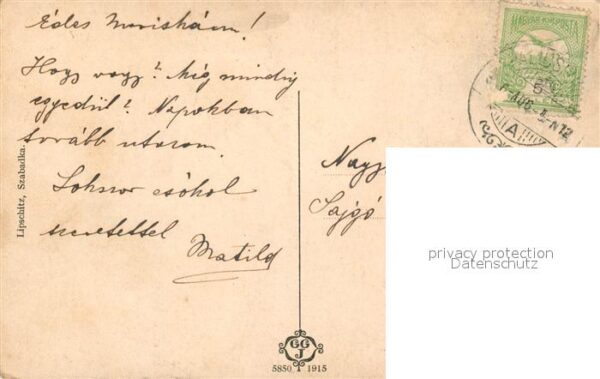 Édes Mariskám!
Hogy vagy? Még mindig
egyedül? Napokban
tovább utazom.
Sokszor csókol
szeretettel
Matild
Lipschitz, Szabadka.
MAGYAR KIR. POSTA
5
A
Nagy
Sajgó
privacy protection
Datenschutz
GG
J
5850 1915